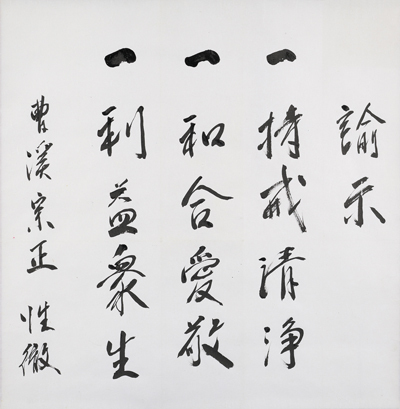 諭示
一 持戒清淨
一 和合愛敬
一 利益衆生
曹溪宗正 性徹